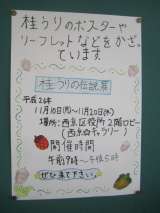 桂うりのポスターや
リーフレットなどをかざっ
ています
桂うりの伝説展
平成26年
11月10日(月)〜11月20日(木)
場所:西京区役所2階ロビー
(西京ギャラリー)
開催時間
午前9時〜午後5時
ぜひ来て下さい。